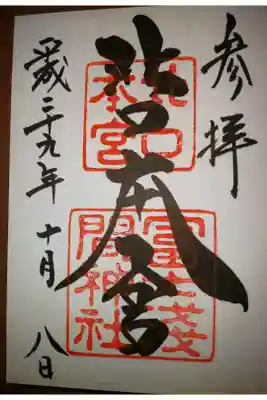 参拝
北口本宮
平成二十九年 十月 八日
北口
本宮
冨士浅
間神社